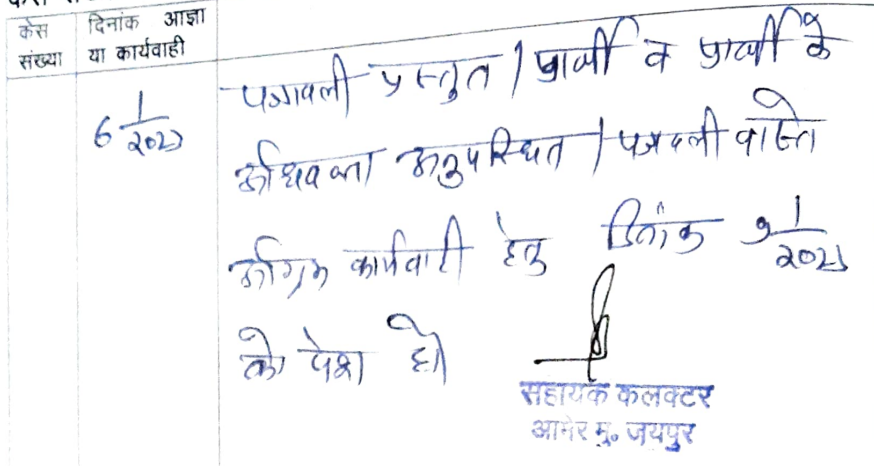 केस दिनांक आज्ञा
संख्या या कार्यवाही
6 1/2023
पत्रावली प्रस्तुत। प्रार्थी व प्रार्थी के
अधिवक्ता अनुपस्थित। पत्रावली वास्ते
अग्रिम कार्यवाही हेतु दिनांक 9 1/2023
को पेश हो
सहायक कलक्टर
आमेर मु॰ जयपुर